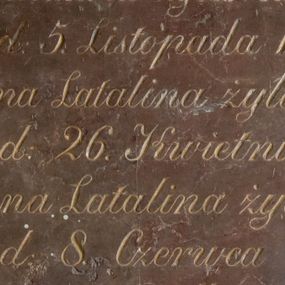 d. 5. Listopada 1
na Latalina żyła
d. 26. Kwietni
na Latalina ży
d. 8. Czerwca